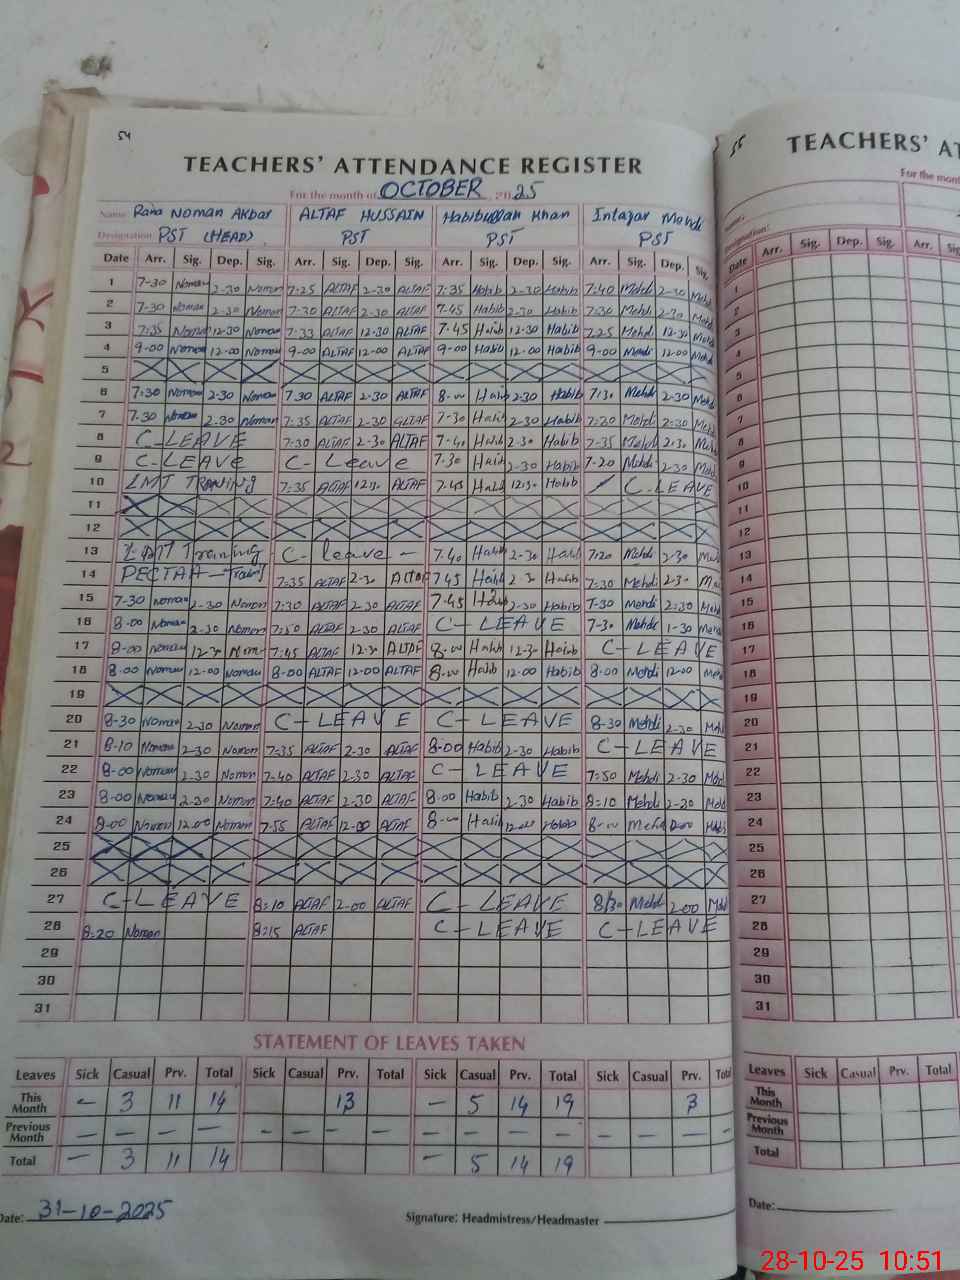 54
TEACHERS' ATTENDANCE REGISTER
For the month of OCTOBER, 2025
Name Rana Noman Akbar ALTAF HUSSAIN Habibullah Khan Intazar Mehdi
Designation PST (HEAD) PST PST PST
Date Arr. Sig. Dep. Sig. Arr. Sig. Dep. Sig. Arr. Sig. Dep. Sig. Arr. Sig. Dep. Sig.
1 7-30 Noman 2-30 Noman 7-25 ALTAF 2-30 ALTAF 7-35 Habib 2-30 Habib 7-40 Mehdi 2-30 Mehd
2 7-30 Noman 2-30 Noman 7-30 ALTAF 2-30 ALTAF 7-45 Habib 2-30 Habib 7-30 Mehdi 2-30 Mehd
3 7-35 Noman 12-30 Noman 7-33 ALTAF 12-30 ALTAF 7-45 Habib 12-30 Habib 7-25 Mehdi 12-30 Mehd
4 9-00 Noman 12-00 Noman 9-00 ALTAF 12-00 ALTAF 9-00 Habib 12-00 Habib 9-00 Mehdi 12-00 Mehd
5
6 7-30 Noman 2-30 Noman 7-30 ALTAF 2-30 ALTAF 8-00 Habib 2-30 Habib 7-30 Mehdi 2-30 Mehd
7 7-30 Noman 2-30 Noman 7-35 ALTAF 2-30 ALTAF 7-30 Habib 2-30 Habib 7-20 Mehdi 2-30 Mehd
8 C-LEAVE 7-30 ALTAF 2-30 ALTAF 7-40 Habib 2-30 Habib 7-35 Mehdi 2-30 Mehd
9 C-LEAVE C-Leave 7-30 Habib 2-30 Habib 7-20 Mehdi 2-30 Mehd
10 LMT TRANING 7-35 ALTAF 12-30 ALTAF 7-45 Habib 12-30 Habib C-LEAVE
11
12
13 Training C-leave - 7-40 Habib 2-30 Habib 7-20 Mehdi 2-30
14 PECTAA - 7-35 ALTAF 2-30 ALTAF 7-45 Habib 2-30 Habib 7-30 Mehdi 2-30
15 7-30 Noman 2-30 Noman 7-30 ALTAF 2-30 ALTAF 7-45 Habib 2-30 Habib 7-30 Mehdi 2-30 Mehd
16 8-00 Noman 2-30 Noman ALTAF 2-30 ALTAF C-LEAVE 7-30 Mehdi 1-30 Mehd
17 8-00 Noman 12-30 Noman 7-45 ALTAF 12-30 ALTAF 8-00 Habib 12-30 Habib C-LEAVE
18 8-00 Noman 12-00 Noman 8-00 ALTAF 12-00 ALTAF 8-00 Habib 12-00 Habib 8-00 Mehdi 12-00 Meh
19
20 8-30 Noman 2-30 Noman C-LEAVE C-LEAVE 8-30 Mehdi 2-30 Mehd
21 8-10 Noman 2-30 Noman 7-35 ALTAF 2-30 ALTAF 8-00 Habib 2-30 Habib C-LEAVE
22 8-00 Noman 2-30 Noman 7-40 ALTAF 2-30 ALTAF C-LEAVE 7-50 Mehdi 2-30 Mehd
23 8-00 Noman 2-30 Noman 7-40 ALTAF 2-30 ALTAF 8-00 Habib 2-30 Habib 8-10 Mehdi 2-30 Mehd
24 8-00 Noman 12-00 Noman 7-55 ALTAF 12-00 ALTAF 8-00 Habib 12-00 Habib 8-00 Mehdi
25
26
27 C-LEAVE 8=10 ALTAF 2-00 ALTAF C-LEAVE 8/30 Mehdi 2-00 Mehd
28 8=20 Noman 8=15 ALTAF C-LEAVE C-LEAVE
29
30
31
STATEMENT OF LEAVES TAKEN
Leaves Sick Casual Prv. Total Sick Casual Prv. Total Sick Casual Prv. Total Sick Casual Prv. Total
This Month - 3 11 14 13 - 5 14 19 3
Previous Month - - - - - - - - - - - - - - -
Total - 3 11 14 - 5 14 19
Date: 31-10-2025
Signature: Headmistress/Headmaster
55
TEACHERS' AT
For the month
Name:
Designation:
Date Arr. Sig. Dep. Sig. Arr. Sig.
1
2
3
4
5
6
7
8
9
10
11
12
13
14
15
16
17
18
19
20
21
22
23
24
25
26
27
28
29
30
31
Leaves Sick Casual Prv. Total
This Month
Previous Month
Total
Date:
28-10-25 10:51